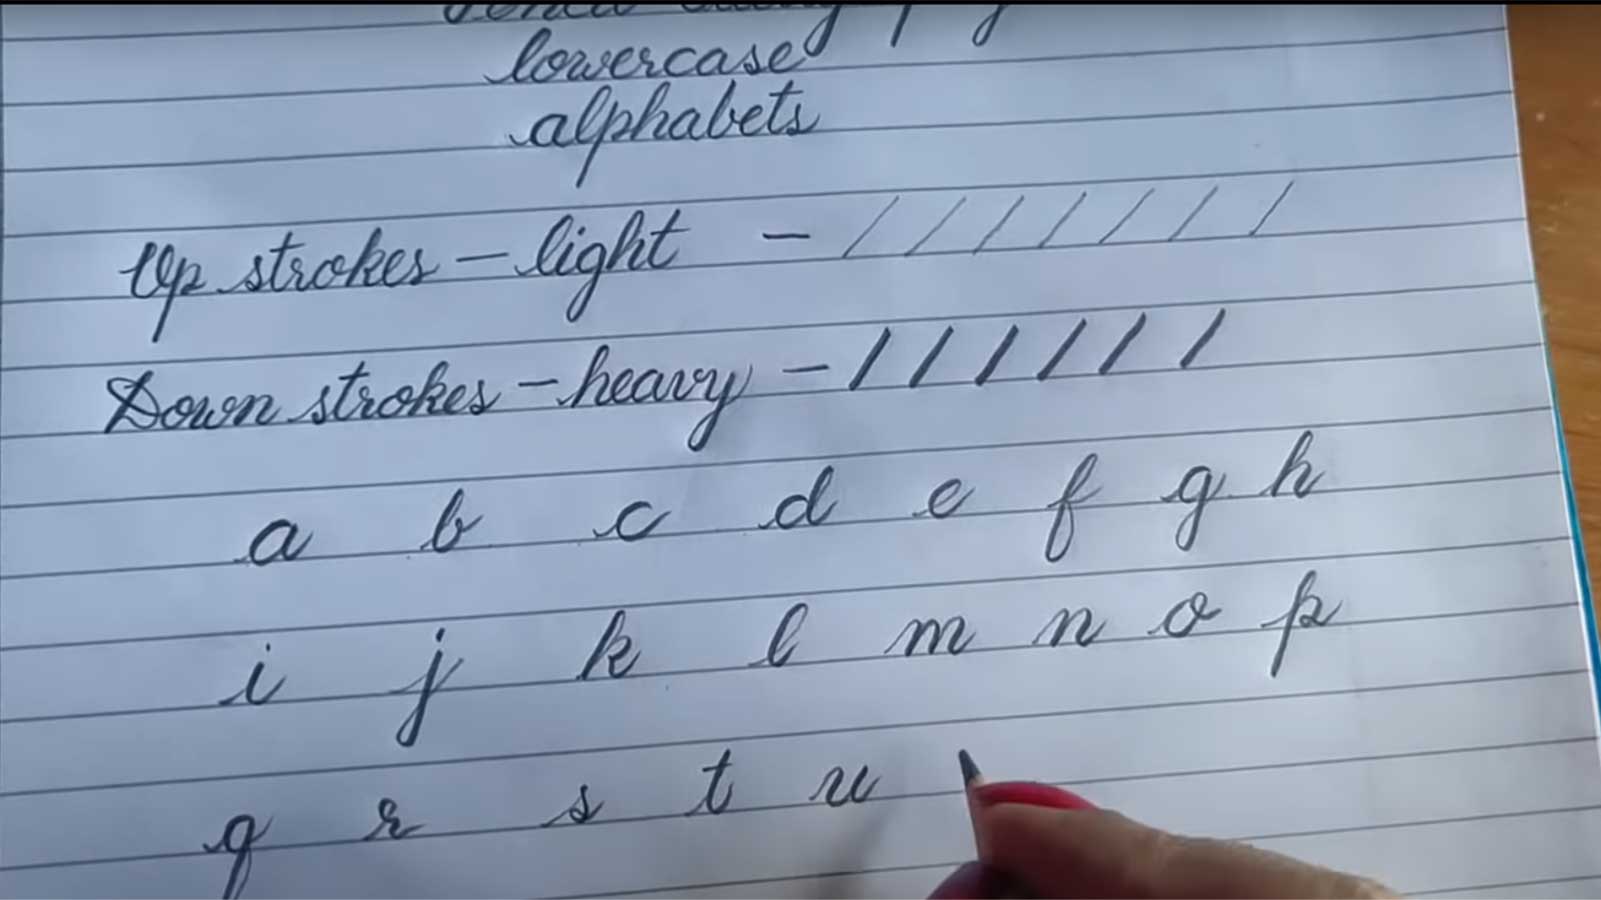 lowercase
alphabets
Up strokes – light – / / / / / / /
Down strokes – heavy – / / / / / /
a b c d e f g h
i j k l m n o p
q r s t u